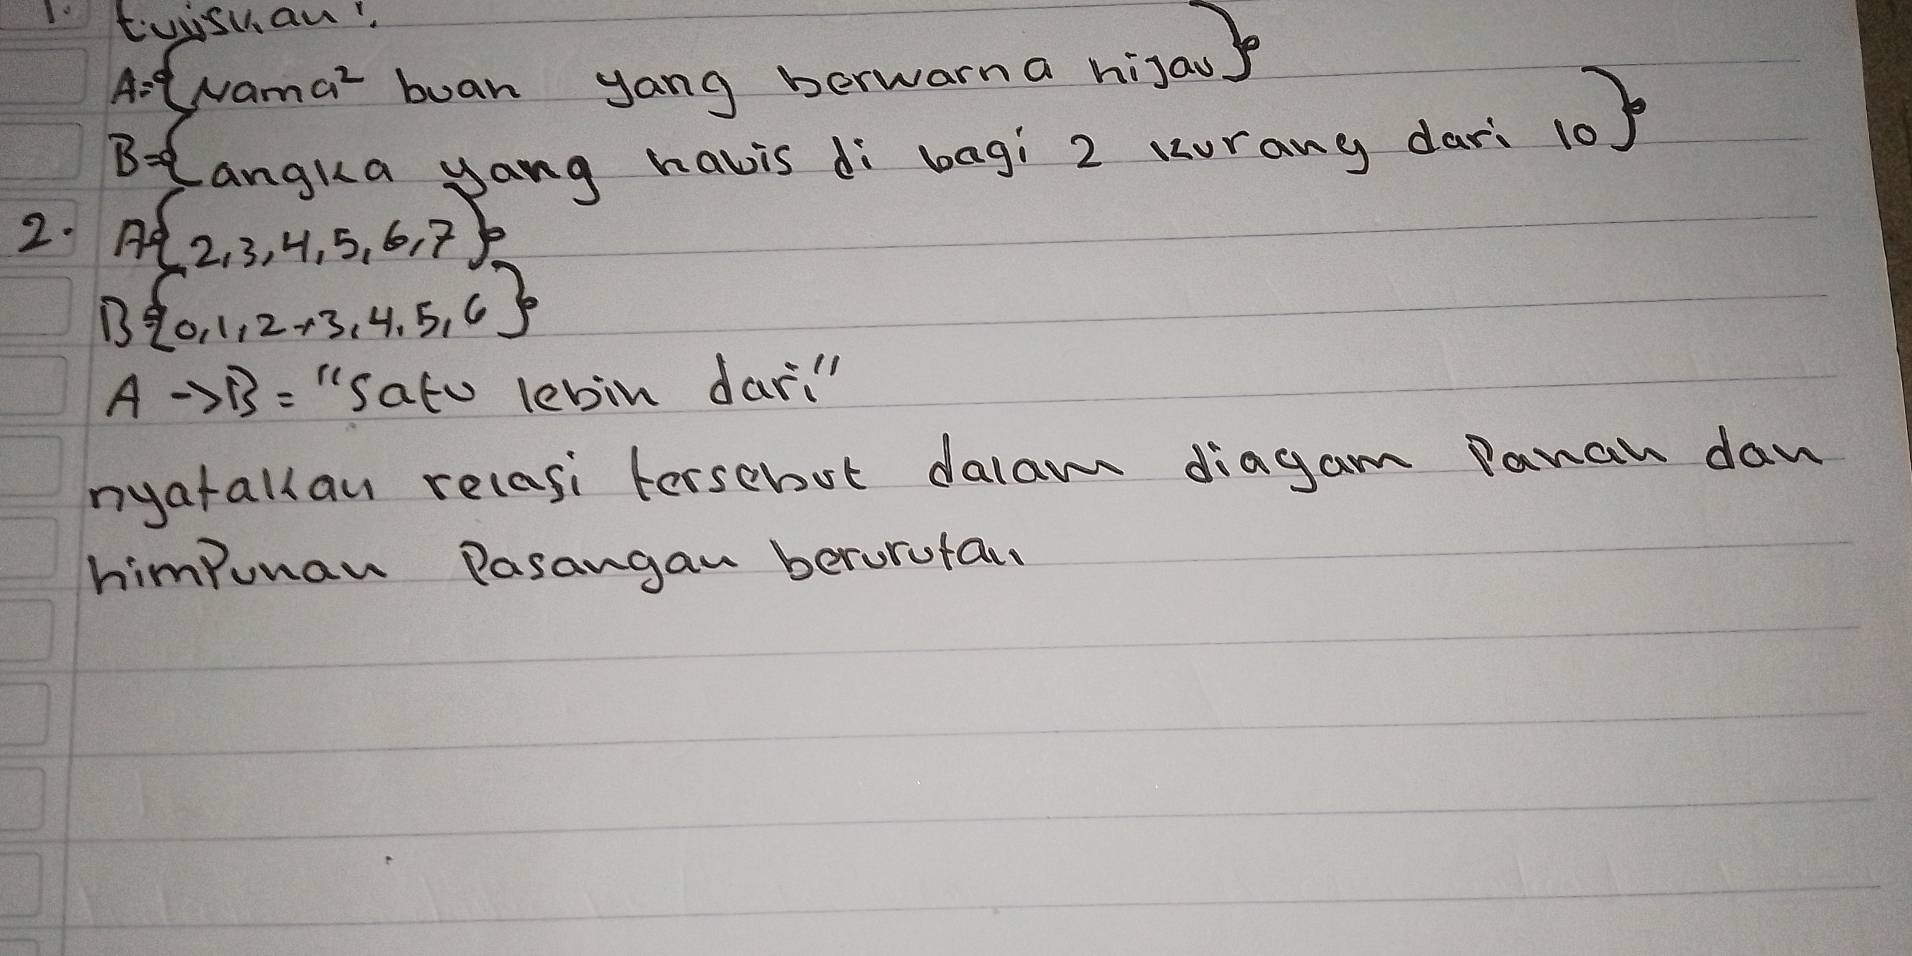 1. tuliskan!
A={Nama² buah yang berwarna hijau}
B={angka yang habis di bagi 2 kurang dari 10}
2. A{2,3,4,5,6,7}
B{0,1,2,3,4,5,6}
A ->B = "Satu lebih dari"
nyatakan relasi tersebut dalam diagam Panah dan
himPunan Pasangan berurutan